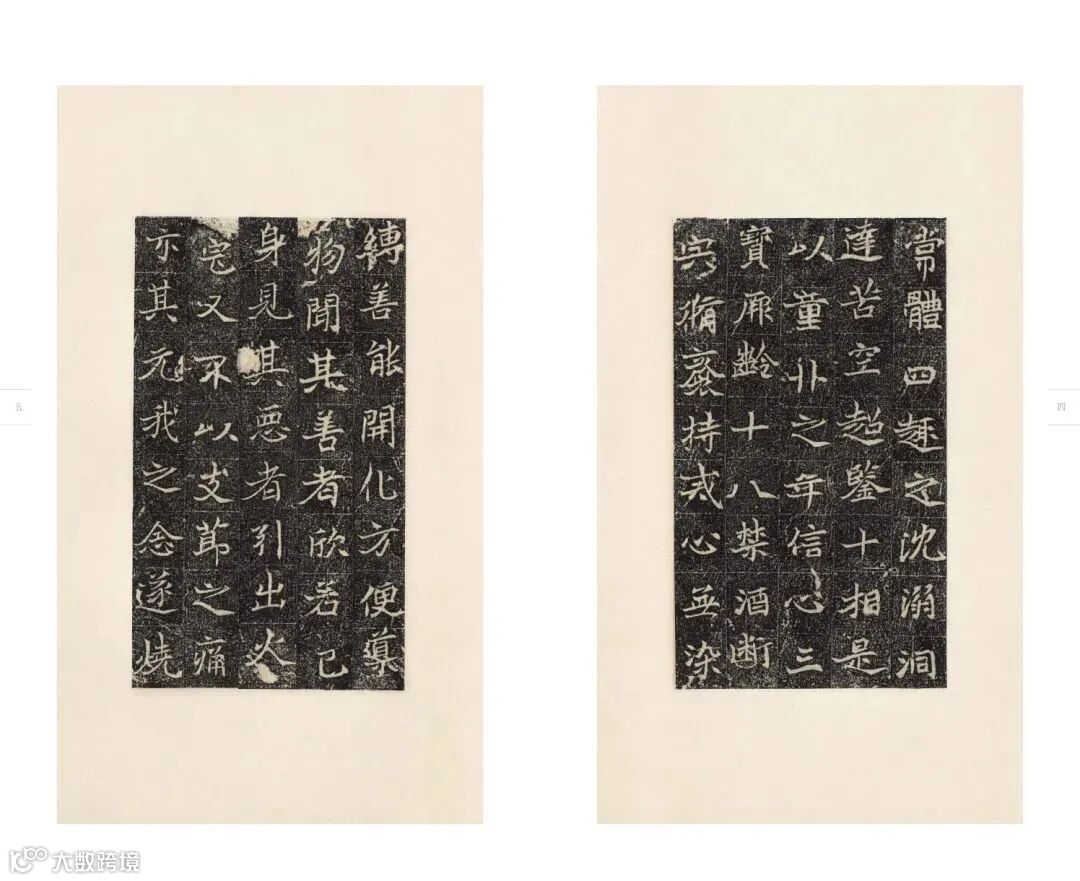 常體四趣之沈溺洞
達苦空超鑒十相是
以童丱之年信心三
寶齡十八禁酒斷
宍脩齋持戒心無染
四
縛善能開化方便導
物聞其善者欣若己
身見其惡者引出火
宅又不以支節之痛
亦其无我之念遂燒
五
大数跨境